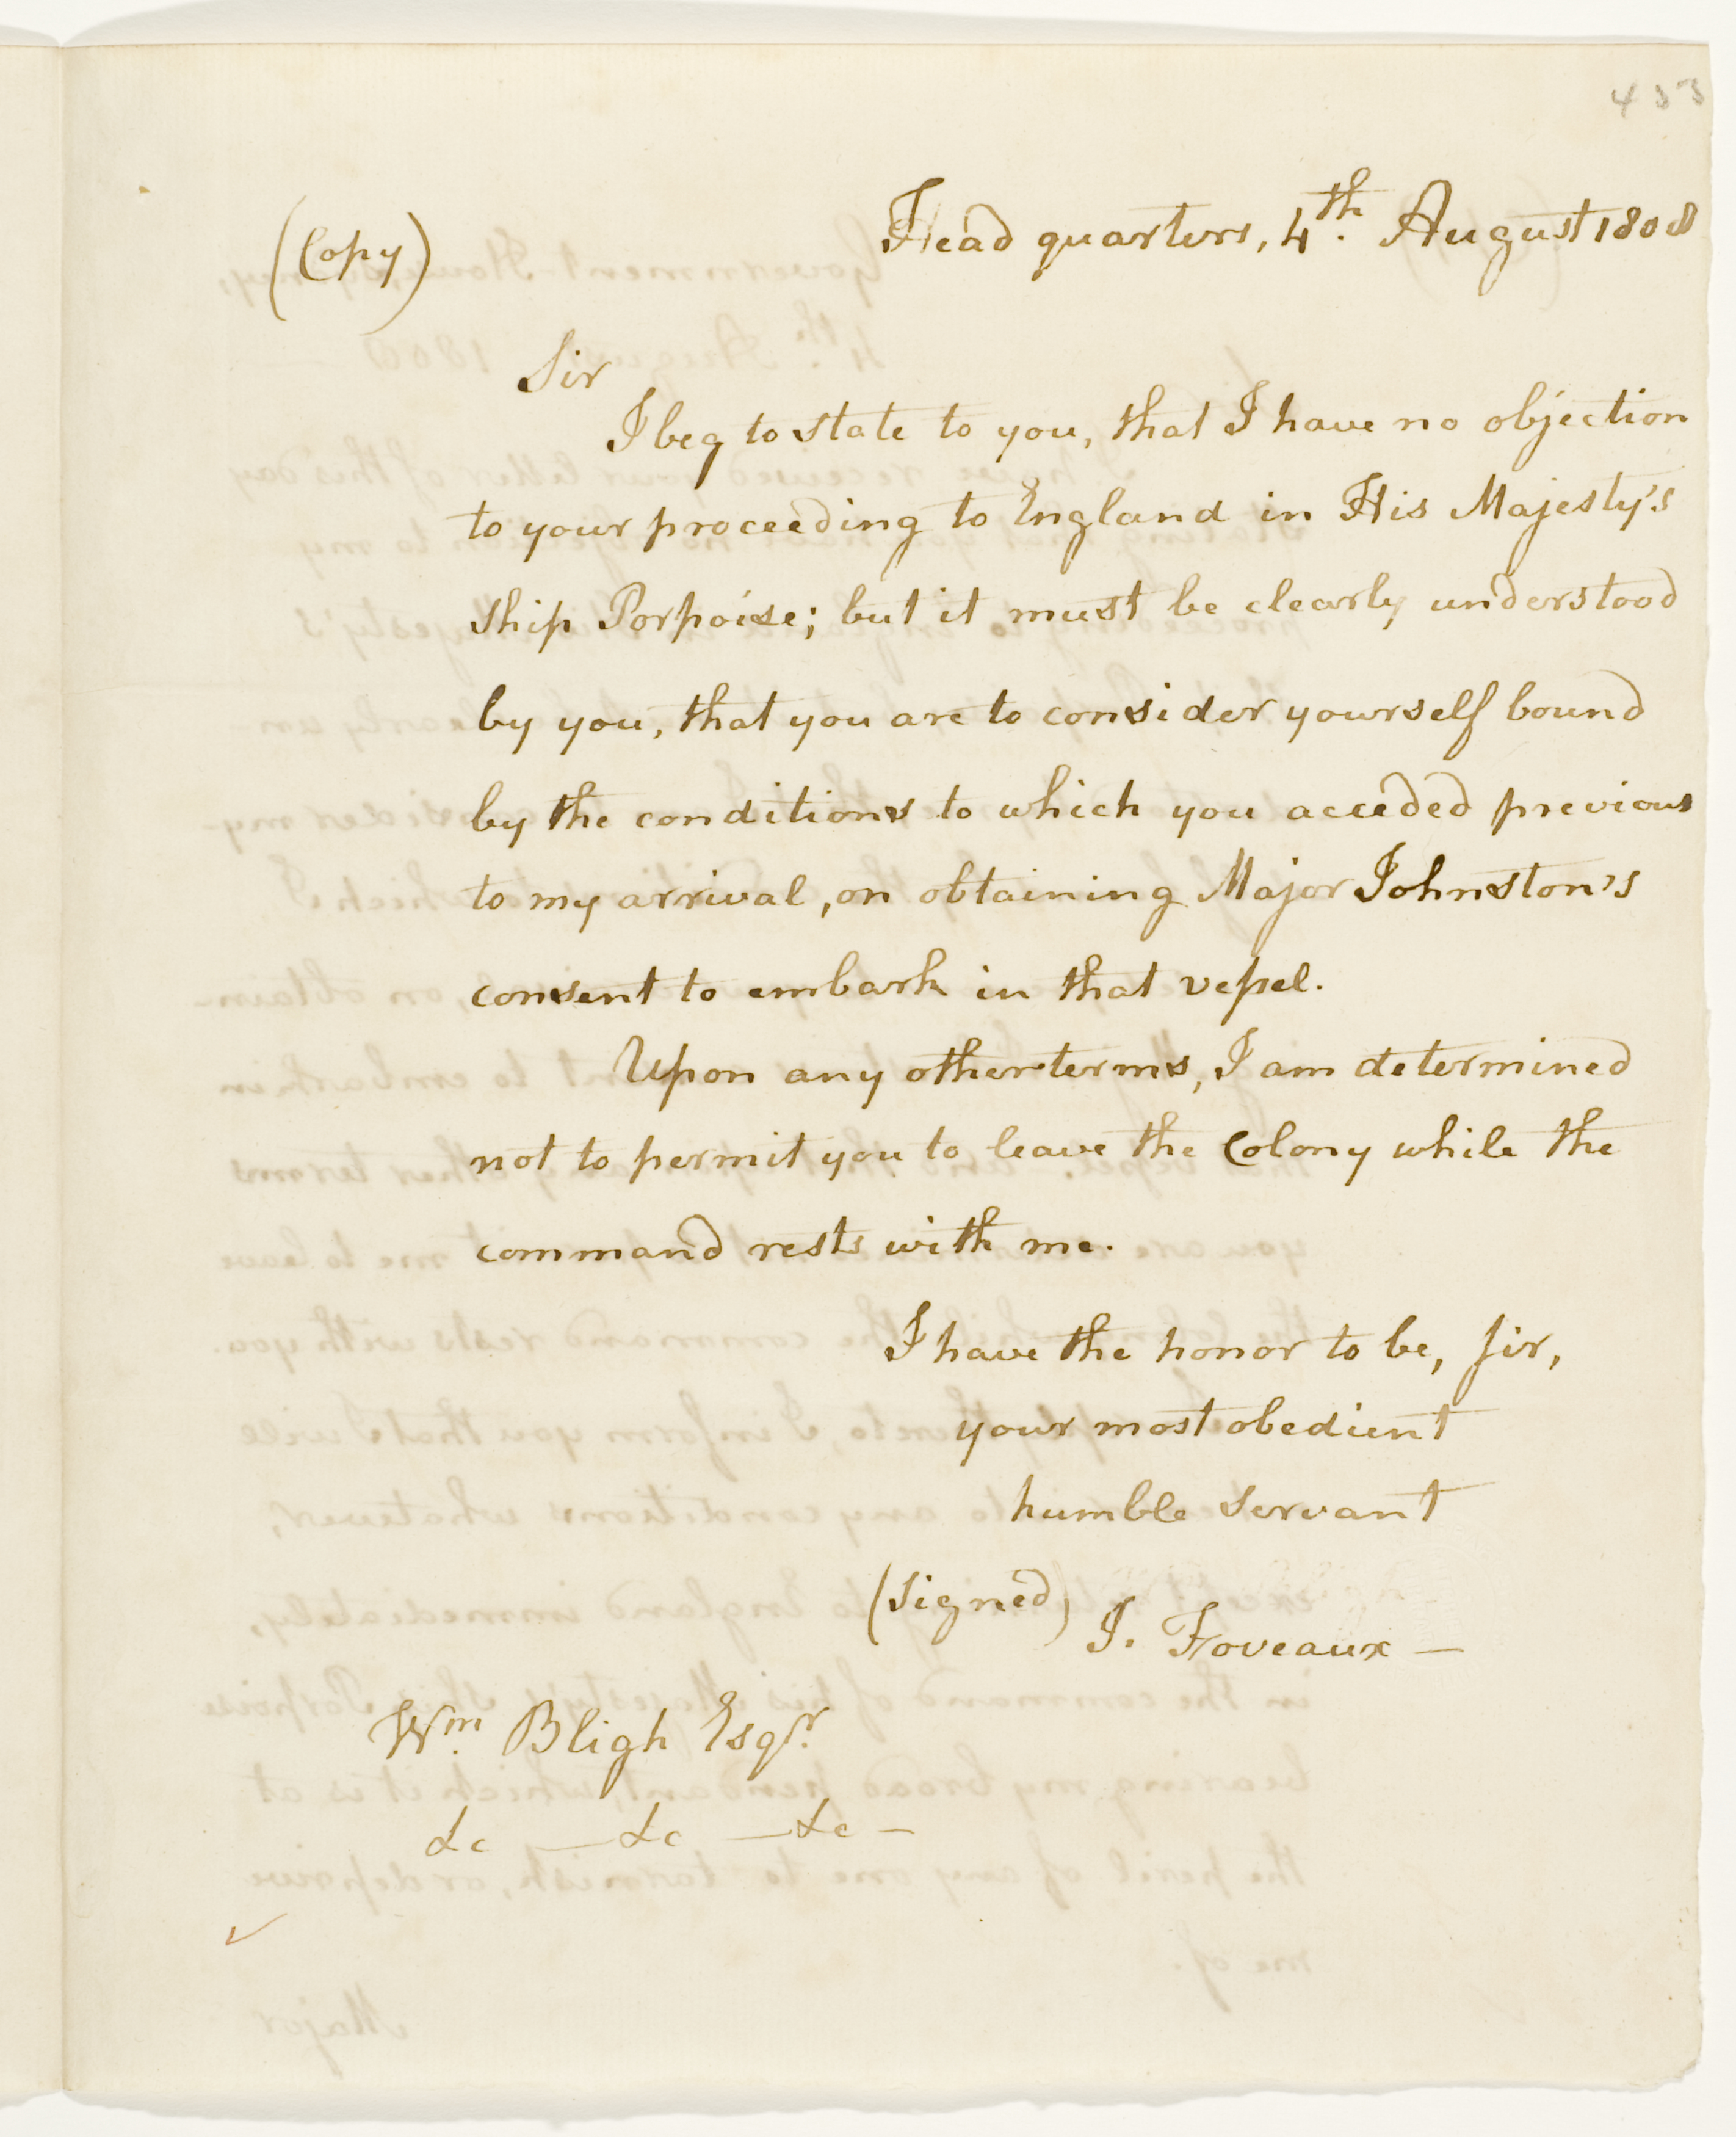 433
(Copy)
Head quarters, 4th. August 1808
Sir
I beg to state to you, that I have no objection
to your proceeding to England in His Majesty's
Ship Porpoise; but it must be clearly understood
by you, that you are to consider yourself bound
by the conditions to which you acceded previous
to my arrival, on obtaining Major Johnston's
consent to embark in that veſsel.
Upon any other terms, I am determined
not to permit you to leave the Colony while the
command rests with me.
I have the honor to be, Sir,
your most obedient
humble Servant
(Signed) J. Foveaux —
Wm. Bligh Esqr.
&c — &c — &c —